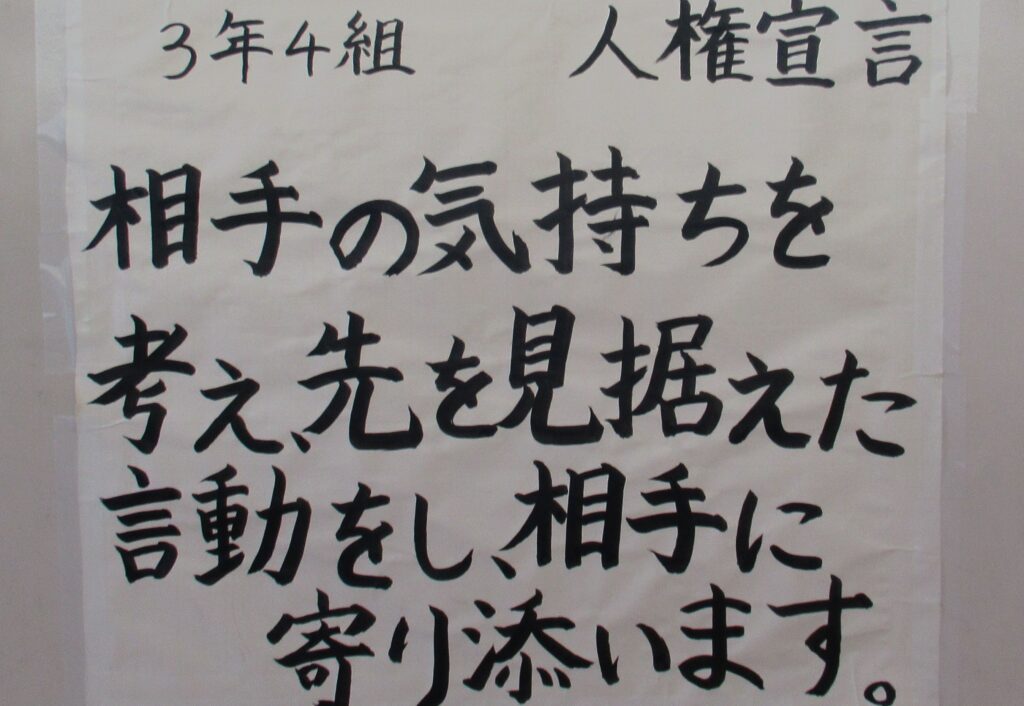 3年4組 人権宣言
相手の気持ちを
考え、先を見据えた
言動をし、相手に
寄り添います。